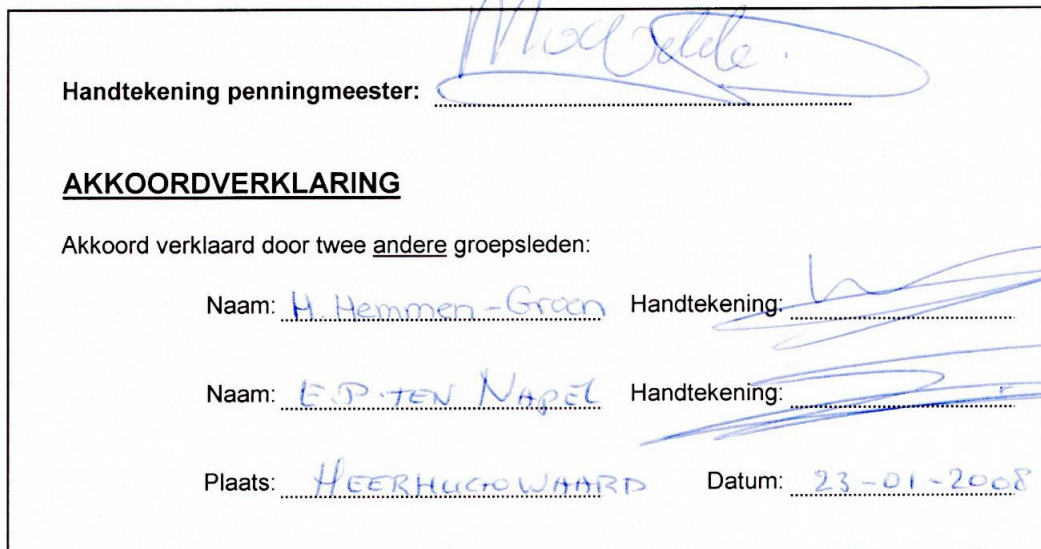 Handtekening penningmeester:
AKKOORDVERKLARING
Akkoord verklaard door twee andere groepsleden:
Naam: H. Hemmen-Groen Handtekening:
Naam: E.P. TEN NAPEL Handtekening:
Plaats: HEERHUGOWAARD Datum: 23-01-2008